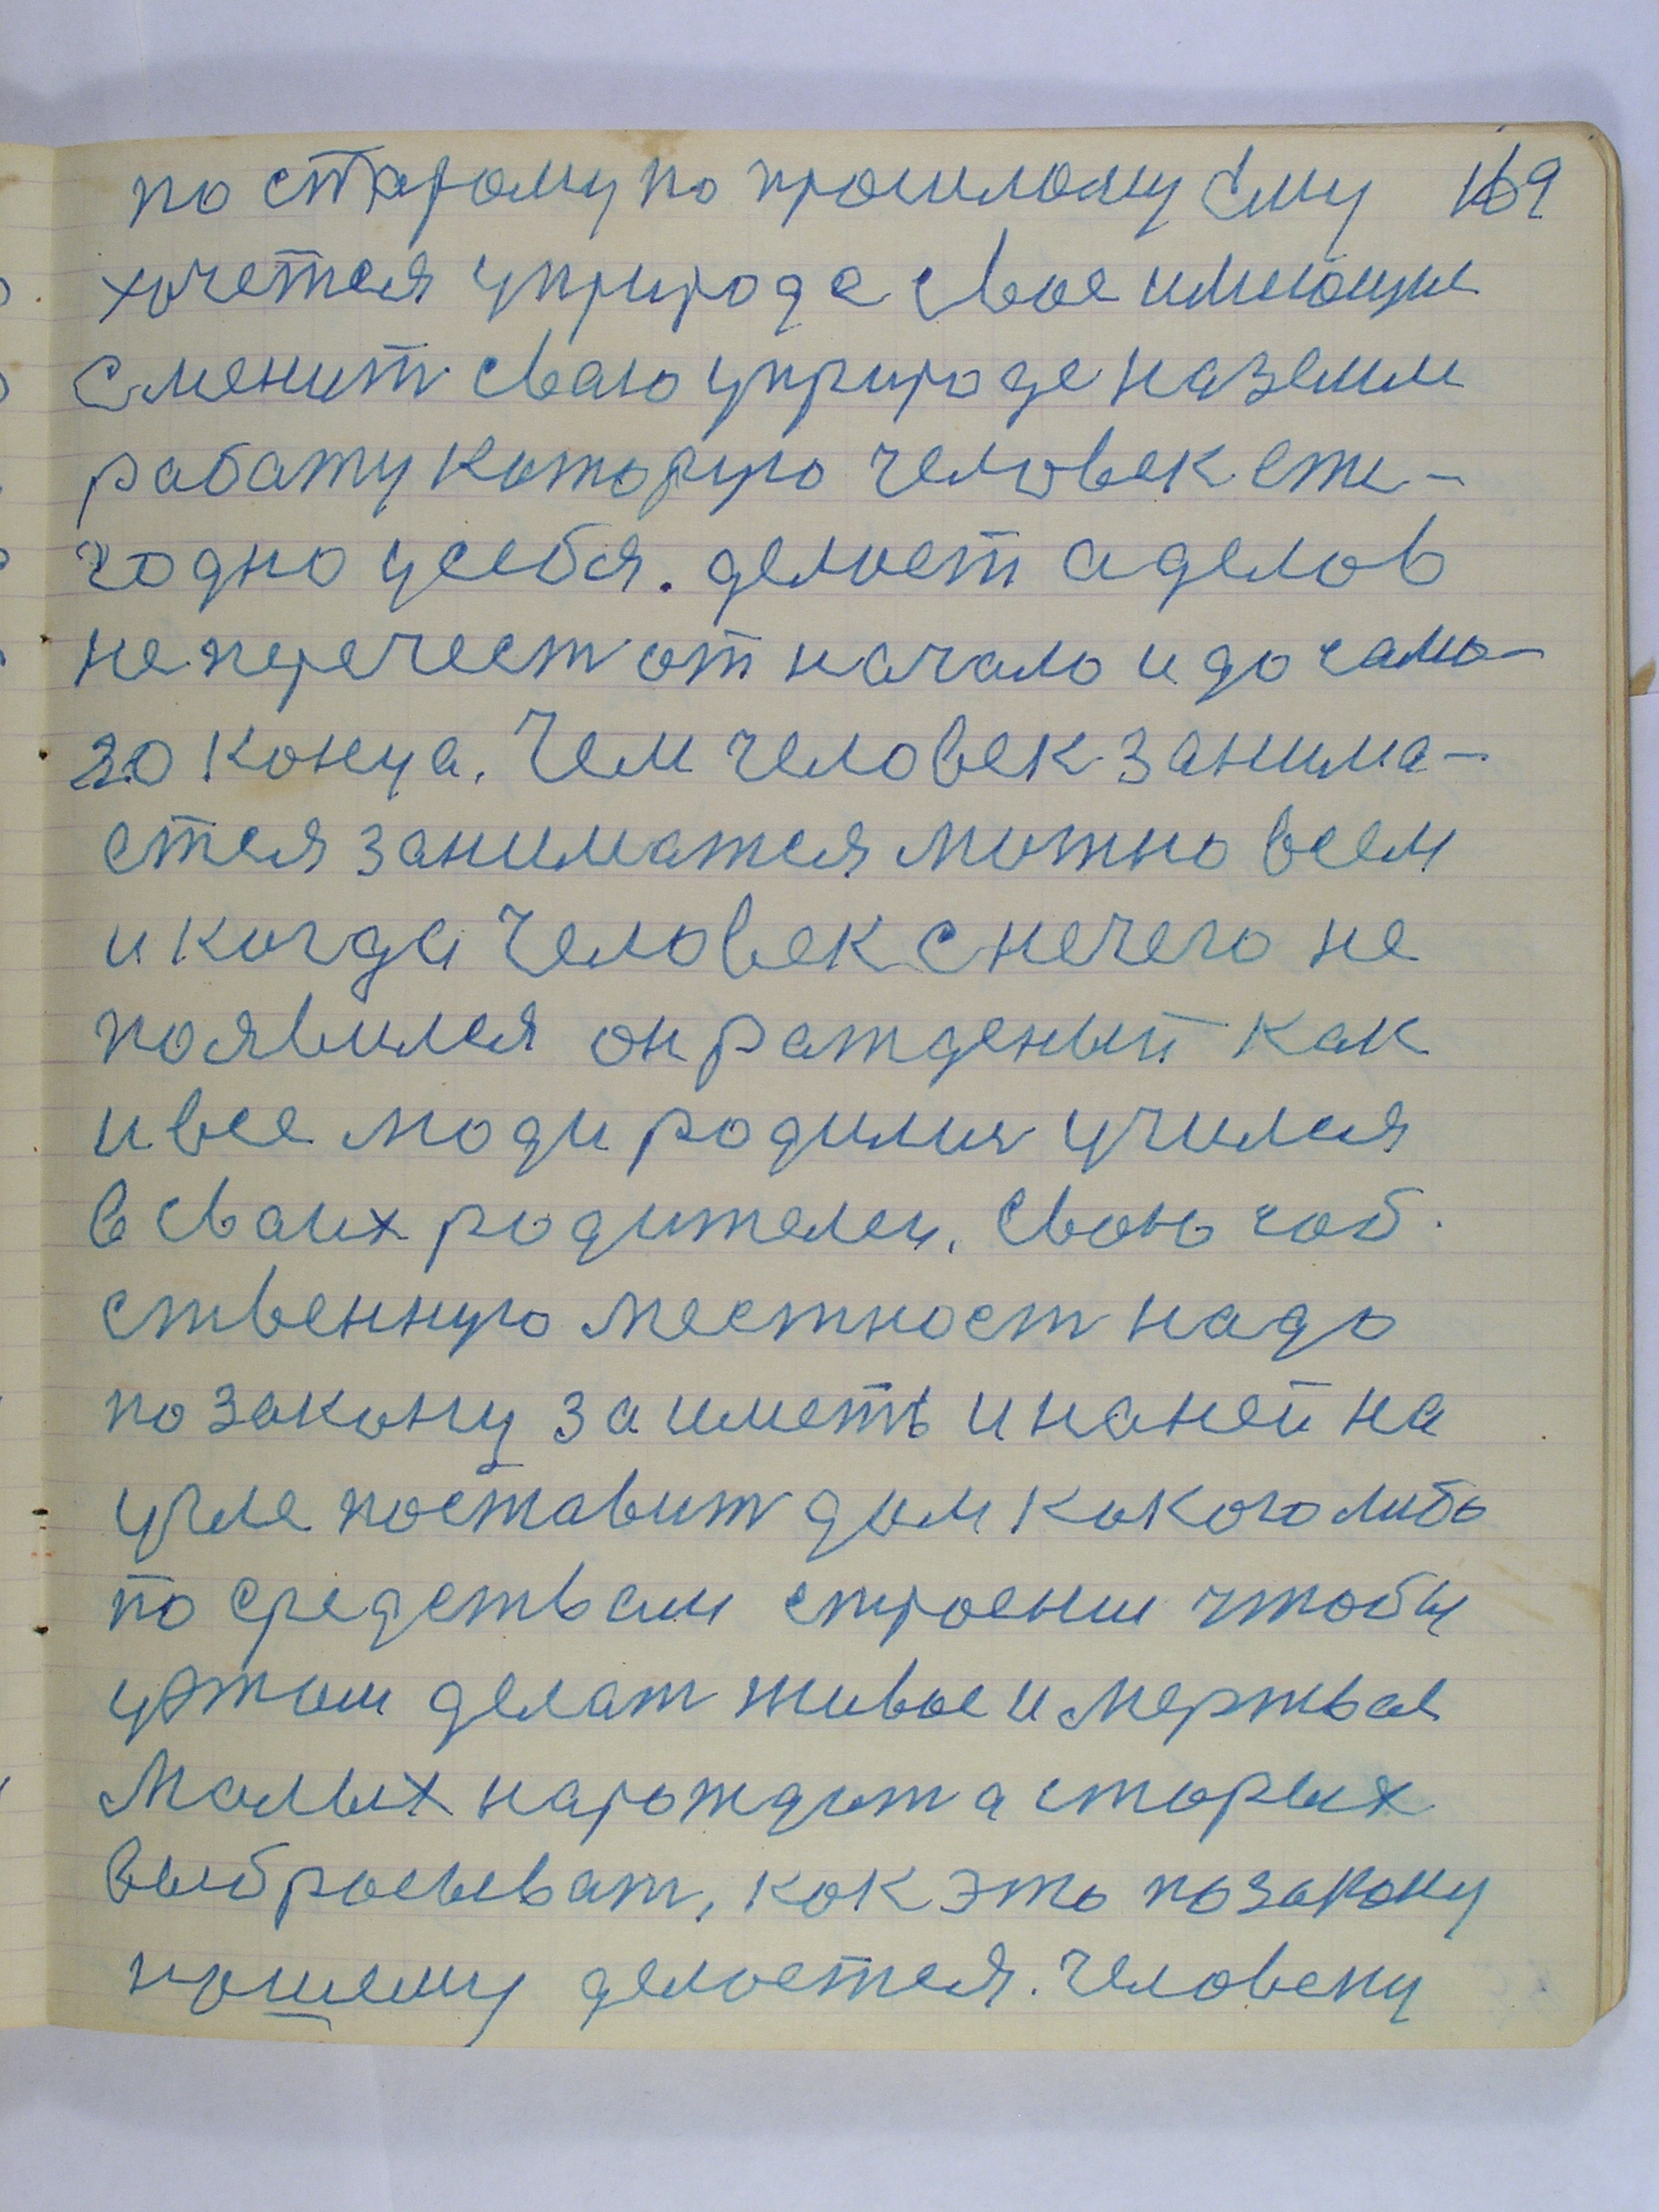 по старому по прошлому Ему 169
хочется уприроде свое имеющие
сменит сваю уприроде наземли
работу которую человек еже-
годно усебя. делает аделов
не перечест от начало и до само-
го конца. Чем человек занима-
ется заниматся можно всем
и когда Человек снечего не
появился он ражденый как
и все люди родился учился
в сваих родителеи. Свою соб.
ственную местност надо
по закону заиметь и наней на
угле поставит дом какого либо
по средствам строении чтобы
уэтом делат живое и мертвае
Малых нарождат а старых
выбрасыват, как это по закону
нашему делается. Человеку